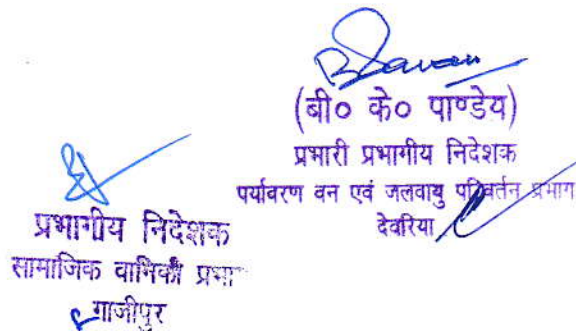 (बी० के० पाण्डेय)
प्रभारी प्रभागीय निदेशक
पर्यावरण वन एवं जलवायु परिवर्तन प्रभाग
देवरिया
प्रभागीय निदेशक
सामाजिक वानिकी प्रभा
गाजीपुर